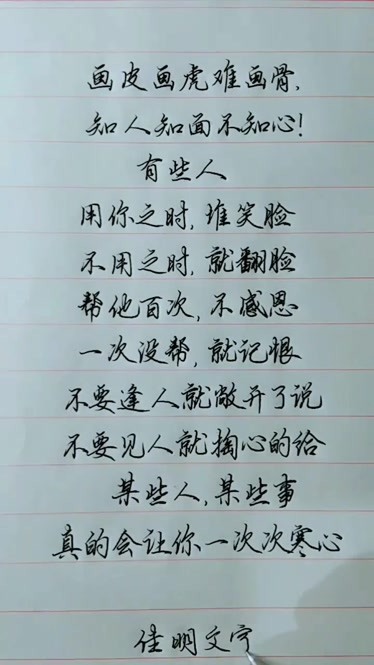 画皮画虎难画骨,
知人知面不知心!
有些人
用你之时,堆笑脸
不用之时,就翻脸
帮他百次,不感恩
一次没帮,就记恨
不要逢人就敞开了说
不要见人就掏心的给
某些人,某些事
真的会让你一次次寒心
佳明文字